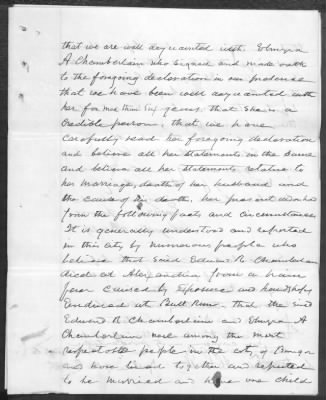 that we are well acquainted with Elmyra
A Chamberlain who signed and made oath
to the foregoing declaration in our presence
that we have been well acquainted with
her for more than six years, that she is a
credible person, that we have
carefully read her foregoing declaration
and believe all her statements in the same
and believe all her statements relative to
her marriage, death of her husband and
the cause of his death, her present
from the following facts and circumstances
It is generally understood and reported
in this city by numerous people who
believe that said Edward R. Chamberlain
died at Alexandria from a brain
fever caused by exposure and hardships
endured at Bull Run. That the said
Edward R Chamberlain and Elmyra A
Chamberlain were among the most
respectable people in the city of Bangor
and have lived together are reputed
to be married and have one child